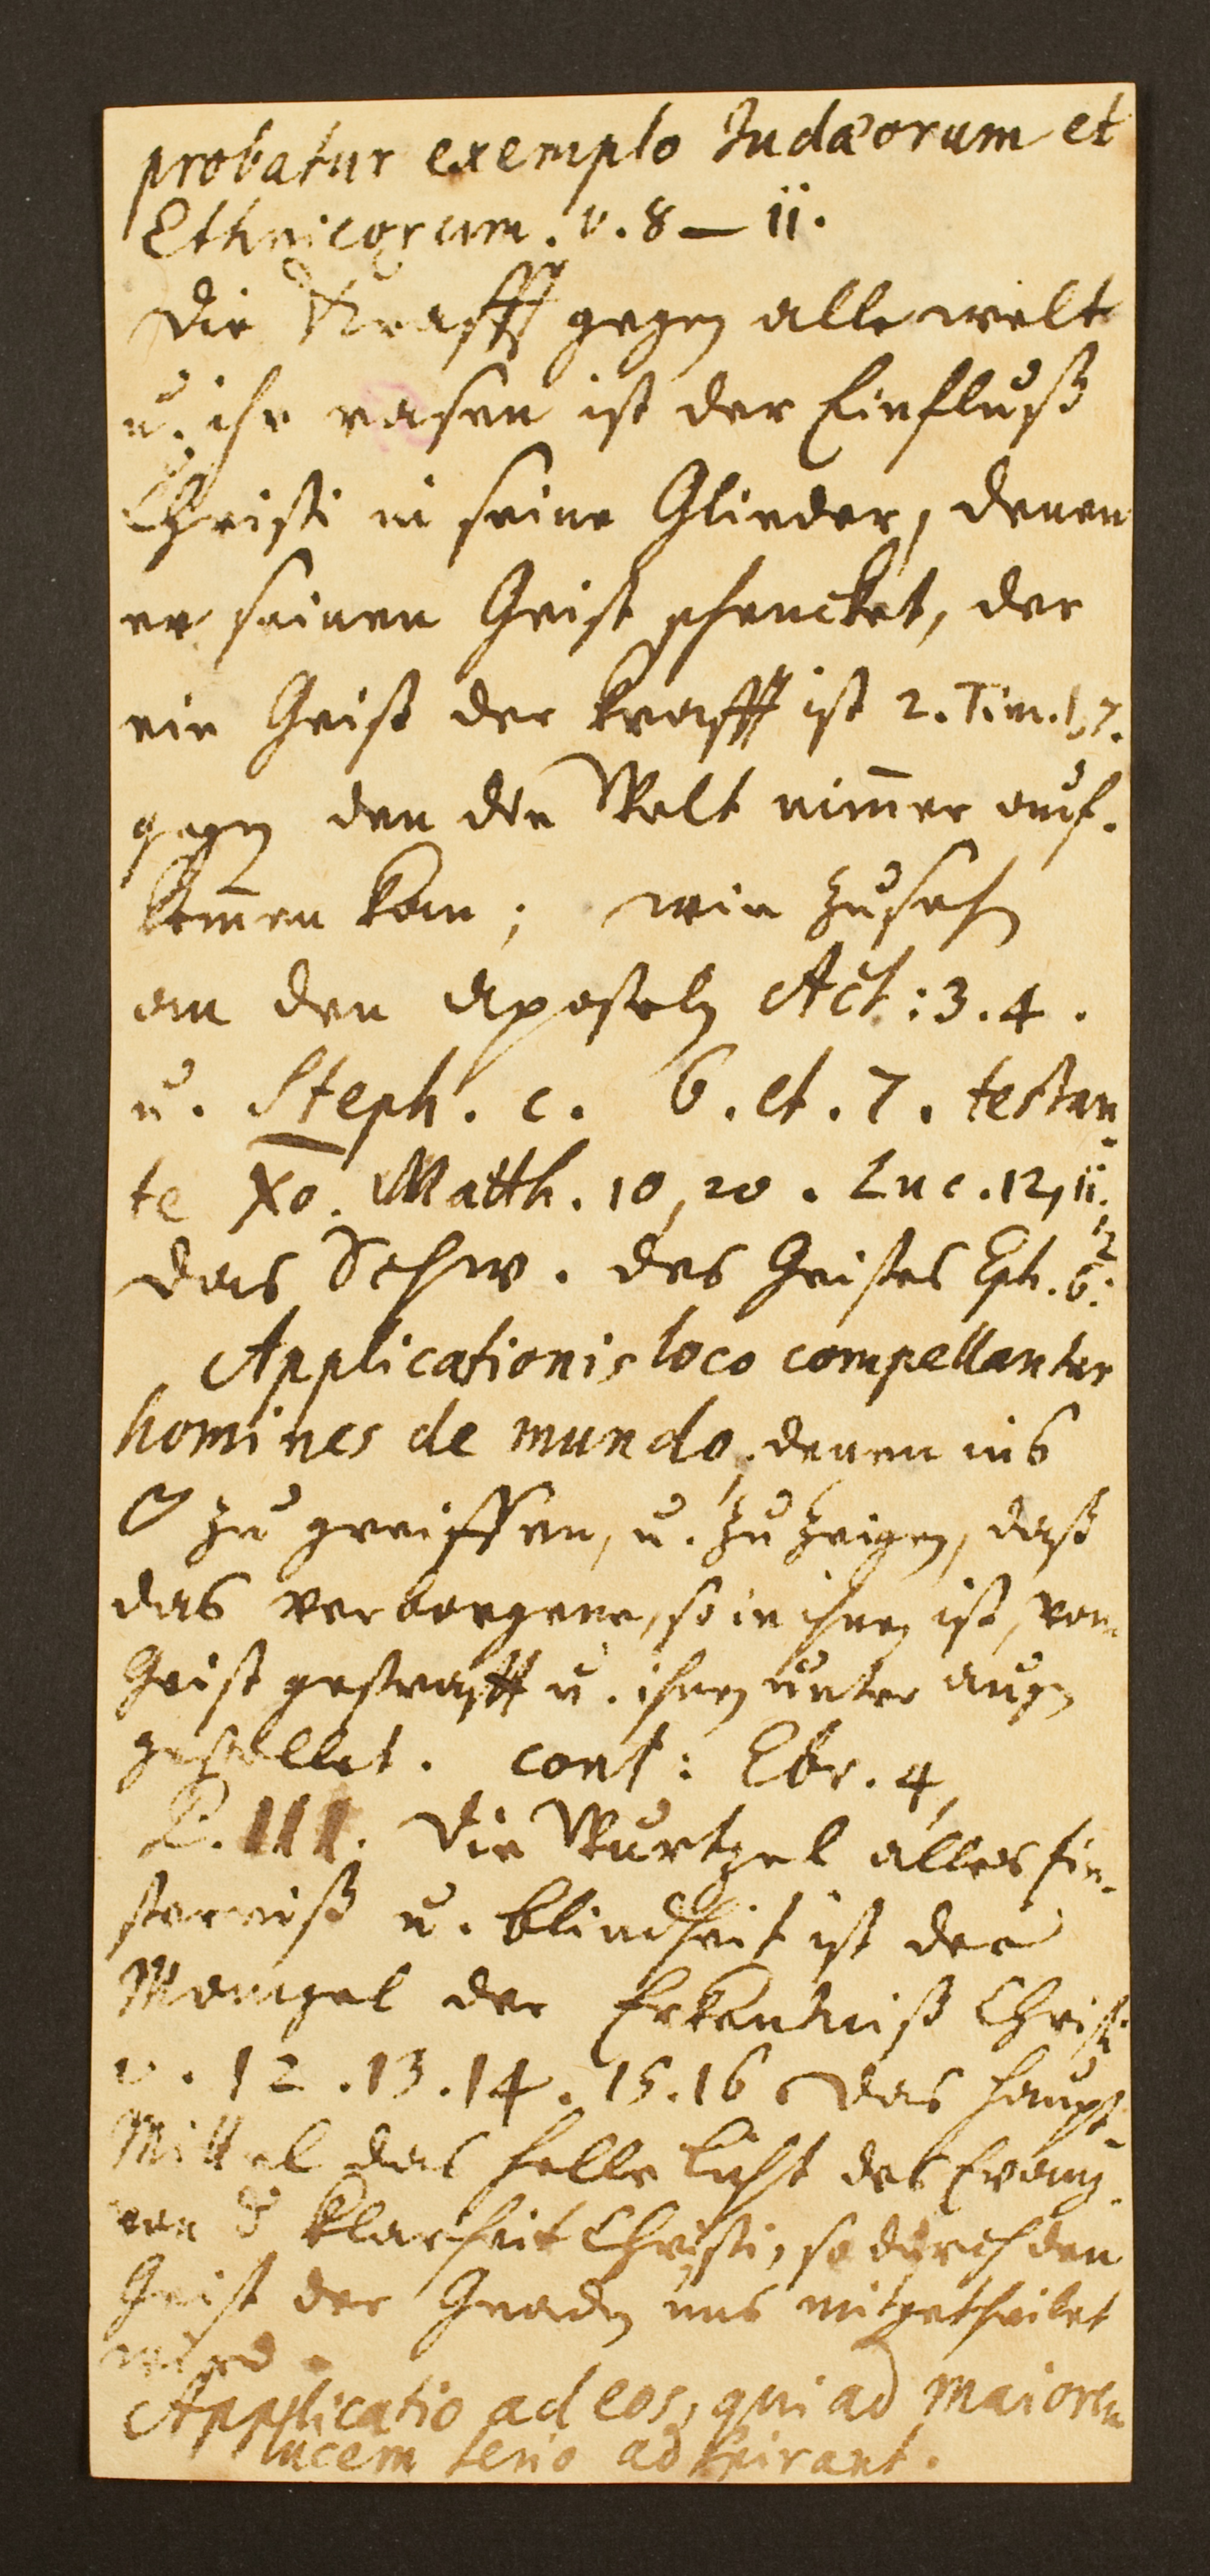 probatur exemplo Judæorum et
Ethnicorum. v. 8 – 11.
Die Krafft gegen alle welt
u. ihr rasen ist der Einfluß
Christi in seine Glieder, denen
er seinen Geist schencket, der
ein Geist der krafft ist 2. Tim. 1, 7.
gegen den die Welt nim̅er auf-
kom̅en kan; wie zusehen
an den Aposteln Act: 3. 4.
u. Steph. c. 6. et. 7. testan-
te Xo. Matth. 10, 20. Luc. 12, 11. 12
das Schw. des Geistes Eph. 6.
Applicationis loco compellantur
homines de mundo, denen ins
zu greiffen, u. zu zeigen, daß
das verborgene, so in ihnen ist, vom
Geist gestrafft u. ihnen unter augen
gestellet. conf: Ebr. 4,
P. III. Die Wurtzel alles fin-
sterniß u. blindheit ist der
Mangel der Erkentniß Christi
v. 12. 13. 14. 15. 16. das haupt-
Mittel das helle Licht des Evang.
von d Klarheit Christi, so durch den
Geist der Gnaden uns mitgetheilet
wird.
Applicatio ad eos, qui ad maiorem
lucem serio adspirant.